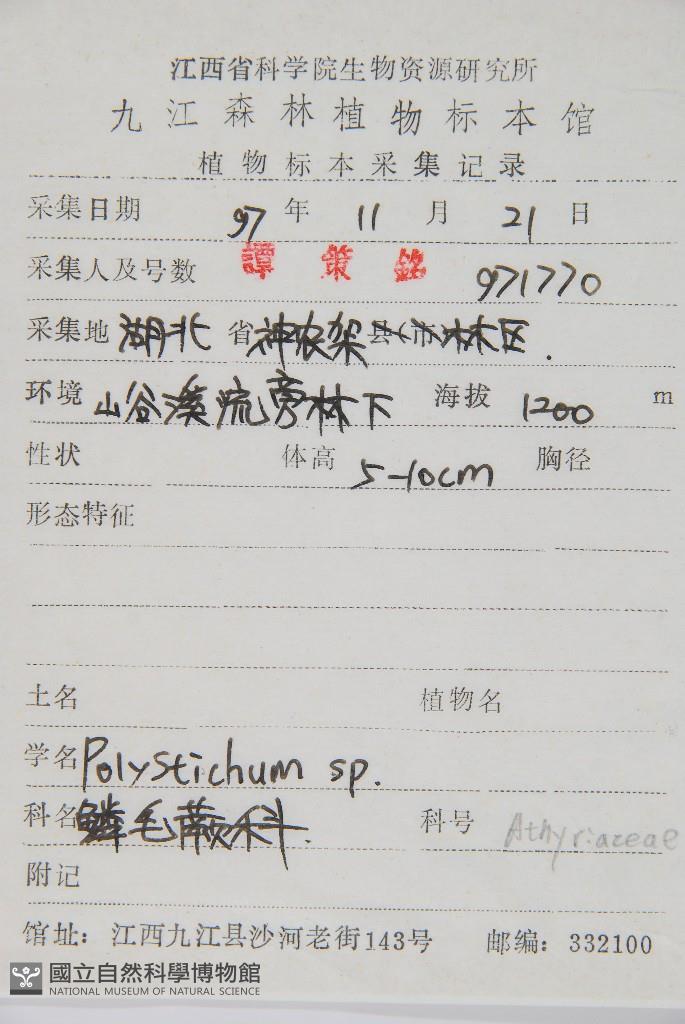 江西省科学院生物资源研究所
九江森林植物标本馆
植物标本采集记录
采集日期 97 年 11 月 21 日
采集人及号数 譚策銘 971770
采集地 湖北 省 神农架 县(市) 林区.
环境 山谷溪流旁林下 海拔 1200 m
性状 体高 5-10cm 胸径
形态特征
土名 植物名
学名 Polystichum sp.
科名 鳞毛蕨科. 科号 Athyriaceae
附记
馆址：江西九江县沙河老街143号 邮编：332100
國立自然科學博物館
NATIONAL MUSEUM OF NATURAL SCIENCE